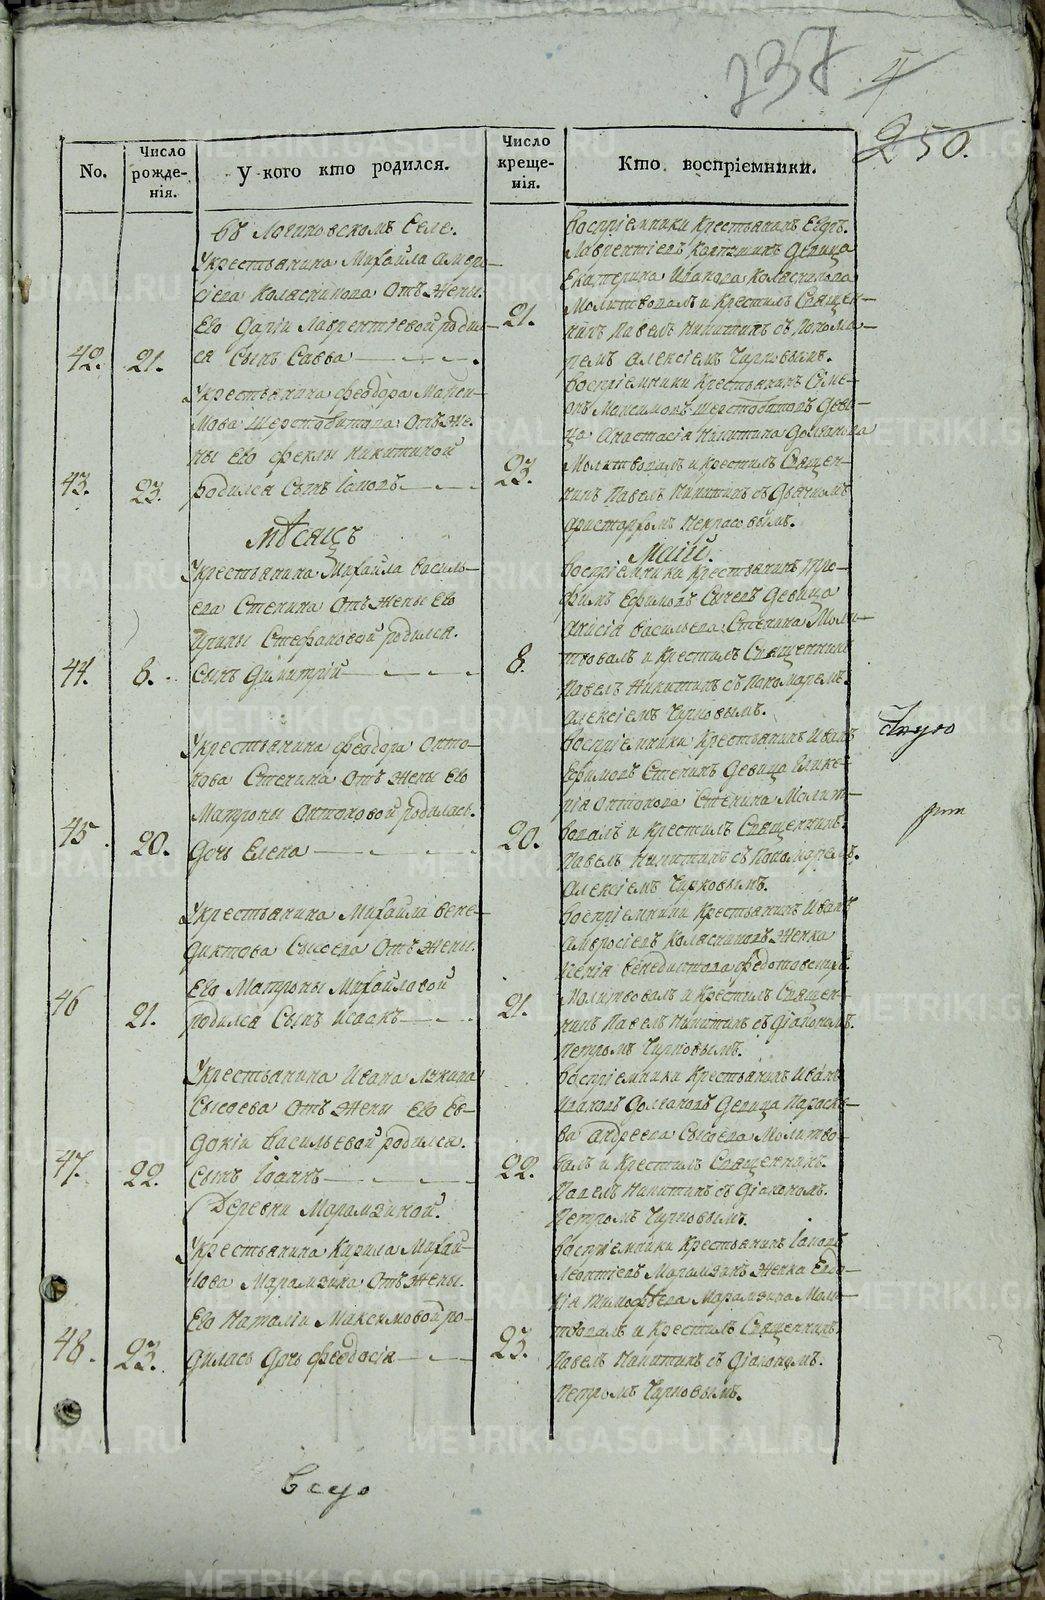 237
4
250.
No.
Число рожде-нія.
У кого кто родился.
Число креще-нія.
Кто воспріемники.
Въ Логиновскомъ Селе.
Укрестьянина Михайла Амвро-
сіева Коляснікова Отъ Жены
Его Даріи Лаврентіевой родил-
ся Сынъ Савва
42.
21.
21.
Воспріемники Крестьянинъ
Лаврентіевъ Девица
Екатерина Иванова Коляснікова
Молитвовалъ и Крестилъ Священ-
никъ Павелъ Никитинъ съ Понома-
ремъ Алексіемъ Чирковымъ.
Укрестьянина Феодора Макси-
мова Шерстобитова Отъ Же-
ны Его Феклы Никитиной
родился Сынъ
43.
23.
23.
Воспріемники Крестьянинъ Симе-
онъ Максимовъ Шерстобитовъ Деви-
ца Анастасія Никитина
Молитвовалъ и Крестилъ Священ-
никъ Павелъ Никитинъ съ Дьячкомъ
Аристархомъ Некрасовымъ.
Мѣсяцъ
Маій.
Укрестьянина Михайла Василь-
ева Стенина Отъ Жены Его
Ирины Стефановой родился
Сынъ Димитрій
44.
8.
8.
Воспріемники Крестьянинъ Тро-
фимъ Ефимовъ Сычевъ Девица
Анисія Васильева Стенина Моли-
твовалъ и Крестилъ Священникъ
Павелъ Никитинъ съ Пономаремъ
Алексіемъ Чирковымъ.
Укрестьянина Феодора Анто-
нова Стенина Отъ Жены Его
Матроны Антоновой родилась
Дочь Елена
45.
20.
20.
Воспріемники Крестьянинъ Иванъ
Ефимовъ Стенинъ Девица Глике-
рія Антонова Стенина Молит-
вовалъ и Крестилъ Священникъ
Павелъ Никитинъ съ Пономаремъ
Алексіемъ Чирковымъ.
Укрестьянина Михайла Вене-
диктова Сысоева Отъ Жены
Его Матроны Михайловой
родился Сынъ Исаакъ
46
21.
21.
Воспріемники Крестьянинъ Иванъ
Амвросіевъ Колясніковъ Женка
Венедиктова
Молитвовалъ и Крестилъ Священ-
никъ Павелъ Никитинъ съ Діакономъ
Петромъ Чирковымъ.
Укрестьянина Ивана Лукина
Сысоева Отъ Жены Его Ев-
докіи Васильевой родился
Сынъ Іоаннъ
47.
22.
22.
Воспріемники Крестьянинъ Иванъ
Ивановъ Девица Параске-
ва Андреева Сысоева Молитво-
валъ и Крестилъ Священникъ
Павелъ Никитинъ съ Діакономъ
Петромъ Чирковымъ.
Деревни Марамзиной.
Укрестьянина Кирила Михай-
лова Марамзина Отъ Жены
Его Наталіи Максимовой ро-
дилась Дочь Феодосія
48.
23.
23.
Воспріемники Крестьянинъ
Леонтіевъ Марамзинъ Женка Евдо-
кія Тимофѣева Марамзина Моли-
твовалъ и Крестилъ Священникъ
Павелъ Никитинъ съ Діакономъ
Петромъ Чирковымъ.
METRIKI.GASO-URAL.RU